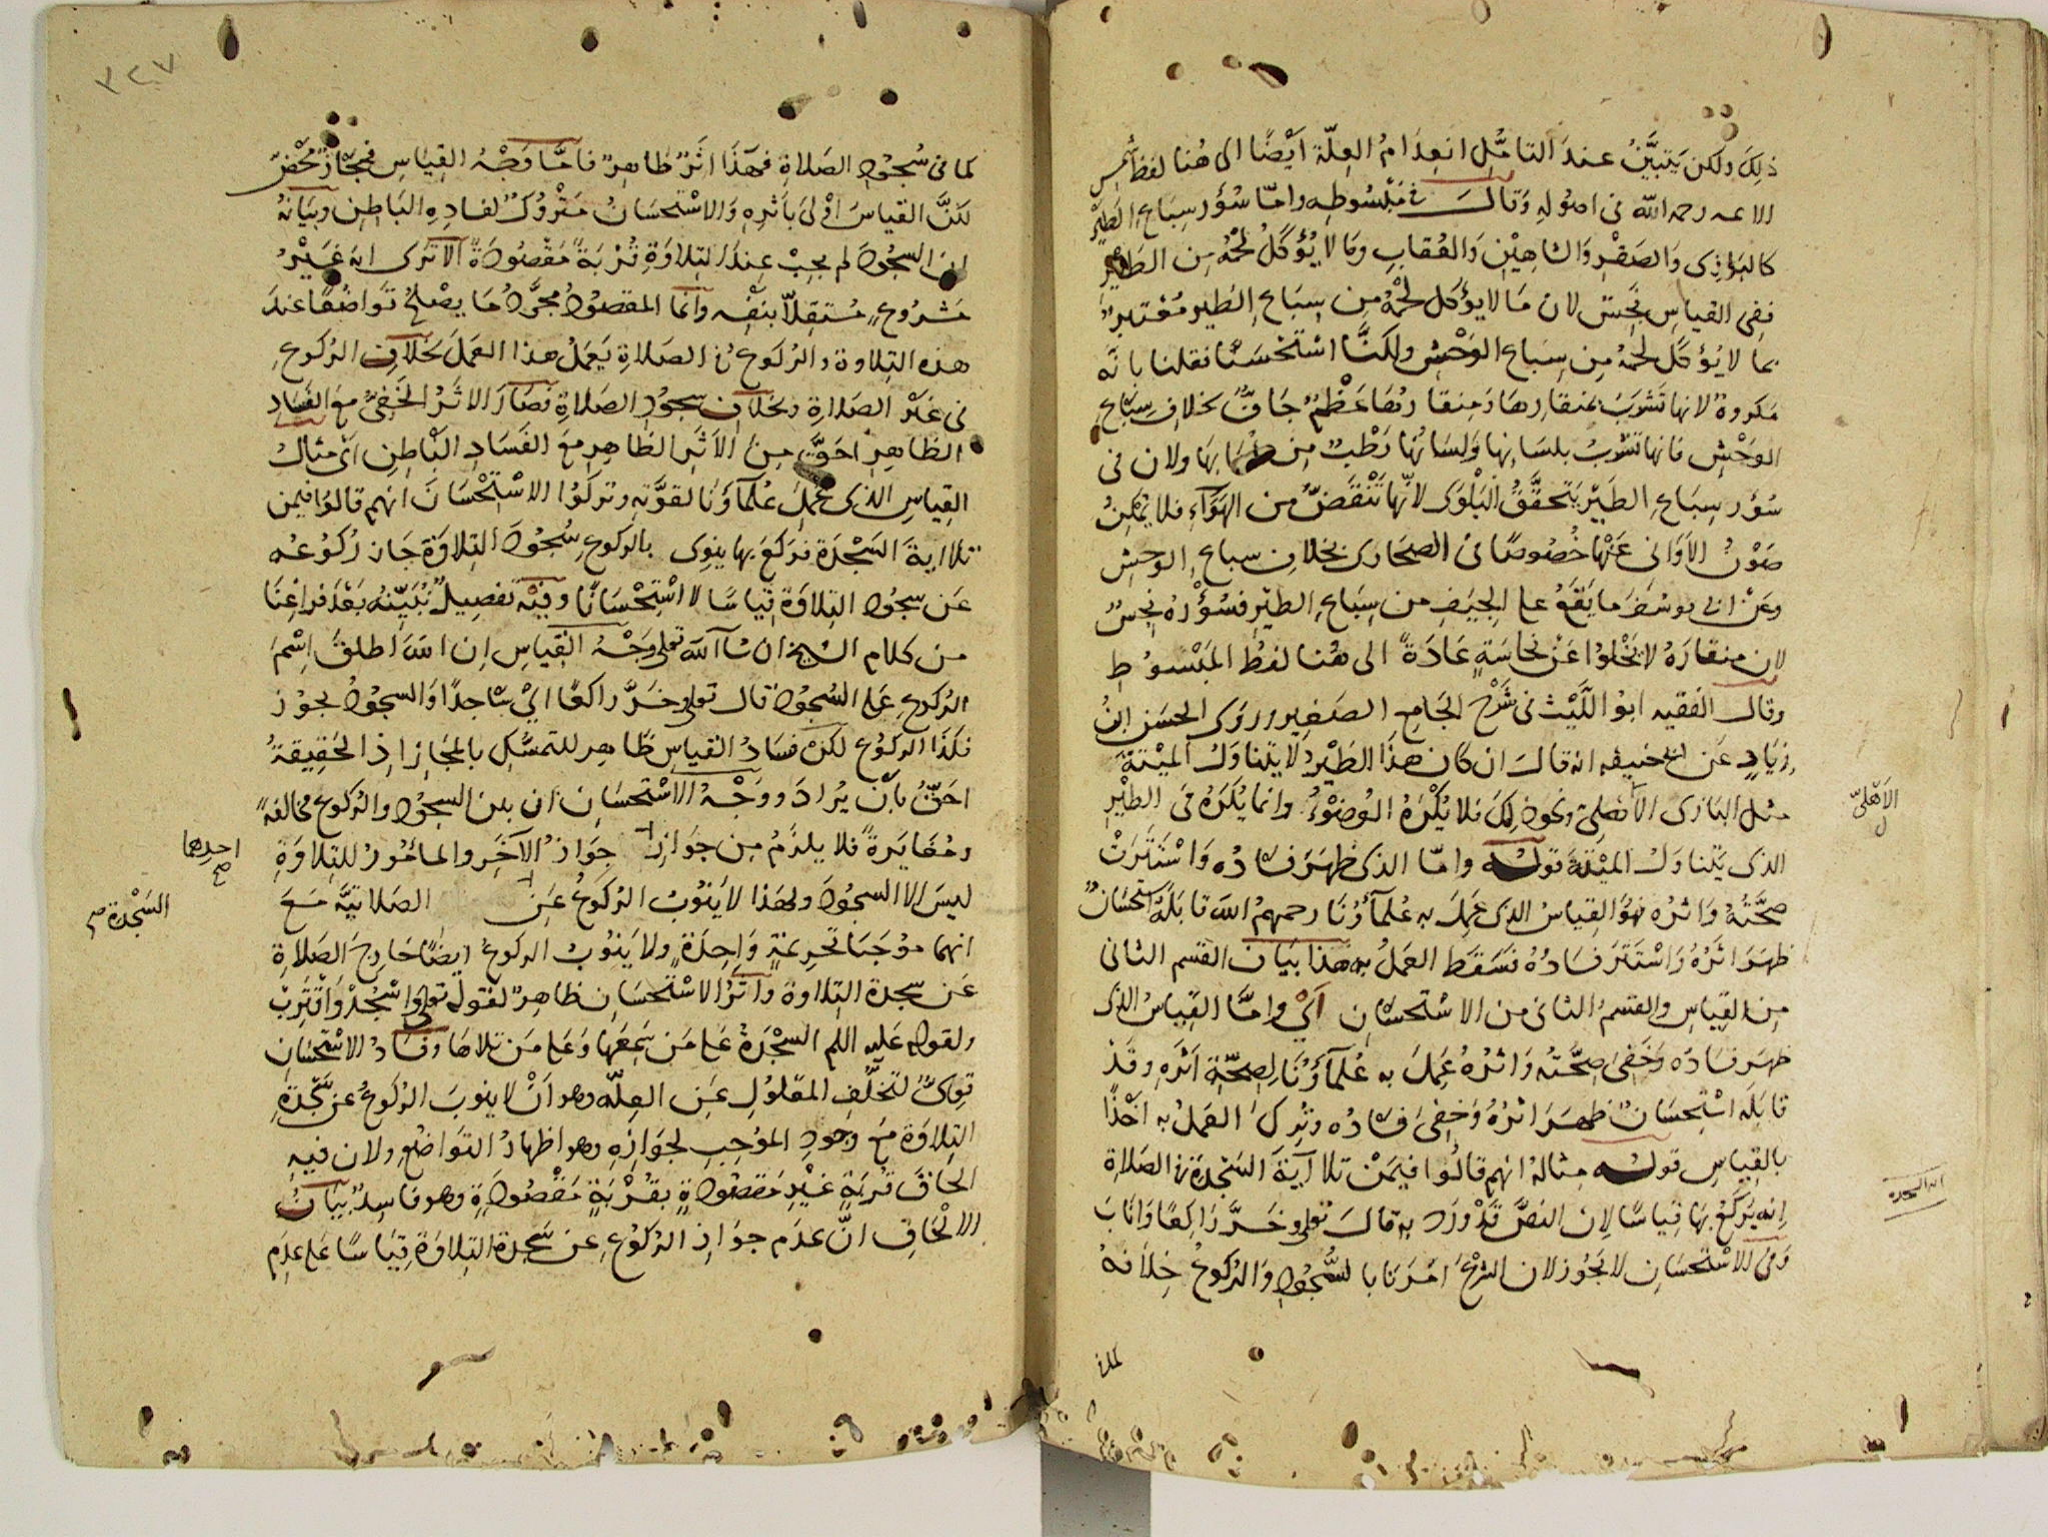 ذلك ولكن يتبيّن عند التأمّل انعدام العلّة أيضًا الى هنا لفظ شمس
الائمه رحمه الله في اصوله وقال في مبسوطه وامّا سؤر سباع الطير
كالبازى والصقر والشاهين والعقاب وما لا يؤكل لحمه من الطير
ففى القياس نجس لان ما لا يؤكل لحمه من سباع الطير معتبر
بما لا يؤكل لحمه من سباع الوحش ولكنّا استحسنّا فقلنا بانّه
مكروه لانها تشرب بمنقارها ومنقارها عظم جافّ بخلاف سباع
الوحش فانها تشرب بلسانها ولسانها رطب من لعابها ولان في
سؤر سباع الطير يتحقّق البلوى لانّها تنقضّ من الهواء فلا يمكن
صون الاوانى عنها خصوصًا في الصحارى بخلاف سباع الوحش
وعن ابى يوسف ما يقع على الجيف من سباع الطير فسؤره نجس
لان منقاره لا يخلوا عن نجاسة عادة الى هنا لفظ المبسوط
وقال الفقيه ابو اللّيث في شرح الجامع الصغير وروى الحسن ابن
زياد عن ابى حنيفه انه قال ان كان هذا الطير لا يتناول الميتة
مثل البازى الاهلىّ ونحو ذلك فلا يكره الوضوء وانما يكره في الطير
الاهلىّ
الذى يتناول الميتة قوله وامّا الذى ظهر فساده واستترت
صحّته واثره فهو القياس الذى عمل به علماؤنا رحمهم الله قابله استحسان
ظهر اثره واستتر فساده فسقط العمل به هذا بيان القسم الثانى
من القياس والقسم الثانى من الاستحسان اى وامّا القياس الذى
ظهر فساده وخفى صحّته واثره عمل به علماؤنا لصحّة اثره وقد
قابله استحسان ظهر اثره وخفى فساده وترك العمل به اخذًا
بالقياس قوله مثاله انهم قالوا فيمن تلا آية السجدة في الصلاة
انه يركع بها قياسًا لان النصّ قد ورد به قال تعلى وخرّ راكعًا واناب
وفى الاستحسان لا يجوز لان الشرع امرنا بالسّجود والركوع خلافه
كما في
كما في سجود الصلاة فهذا اثر ظاهر فامّا وجه القياس فمجاز محض
لكنّ القياس اولى باثره والاستحسان متروك لفساده الباطن وبيانه
ان السجود لم يجب عند التلاوة قربة مقصودة الا ترى انه غير
مشروع مستقلّا بنفسه وانما المقصود مجرّد ما يصلح تواضعًا عند
هذه التلاوة والركوع في الصلاة يعمل هذا العمل بخلاف الركوع
في غير الصلاة وبخلاف سجود الصلاة فصار الاثر الخفىّ مع الفساد
الظاهر احقّ من الاثر الظاهر مع الفساد الباطن اى مثال
القياس الذى عمل علماؤنا لقوّته وتركوا الاستحسان انهم قالوا فيمن
تلا اية السجدة فركع بها ينوى بالركوع سجود التلاوة جاز ركوعه
عن سجود التلاوة قياسًا لا استحسانًا وفيه تفصيل نبيّنه بعد فراغنا
من كلام الشيخ ان شا الله تعلى وجه القياس ان الله اطلق اسم
الركوع على السجود قال تعلى وخرّ راكعًا اى ساجدًا والسجود يجوز
فكذا الركوع لكن فساد القياس ظاهر للتمسّك بالمجاز اذ الحقيقة
احقّ بأن يراد ووجه الاستحسان ان بين السجود والركوع مخالفة
ومغايرة فلا يلزم من جواز جواز الآخر والمأمور للتلاوة
احدهما صح
ليس الا السجود ولهذا لا ينوب الركوع عن الصلاتيّة مع
السجدة صح
انهما موجبا تحريمة واحدة ولا ينوب الركوع ايضًا خارج الصلاة
عن سجدة التلاوة واثر الاستحسان ظاهر لقوله تعلى واسجد واقترب
ولقوله عليه السلم السجدة على من سمعها وعلى من تلاها وفساد الاستحسان
قوىّ لتخلّف المعلول عن العلّة وهو أن لا ينوب الركوع عن سجدة
التلاوة مع وجود الموجب لجوازه وهو اظهار التواضع ولان فيه
الحاق قربة غير مقصودة بقربة مقصودة وهو فاسد بيان
الالحاق انّ عدم جواز الركوع عن سجدة التلاوة قياسًا على عدم